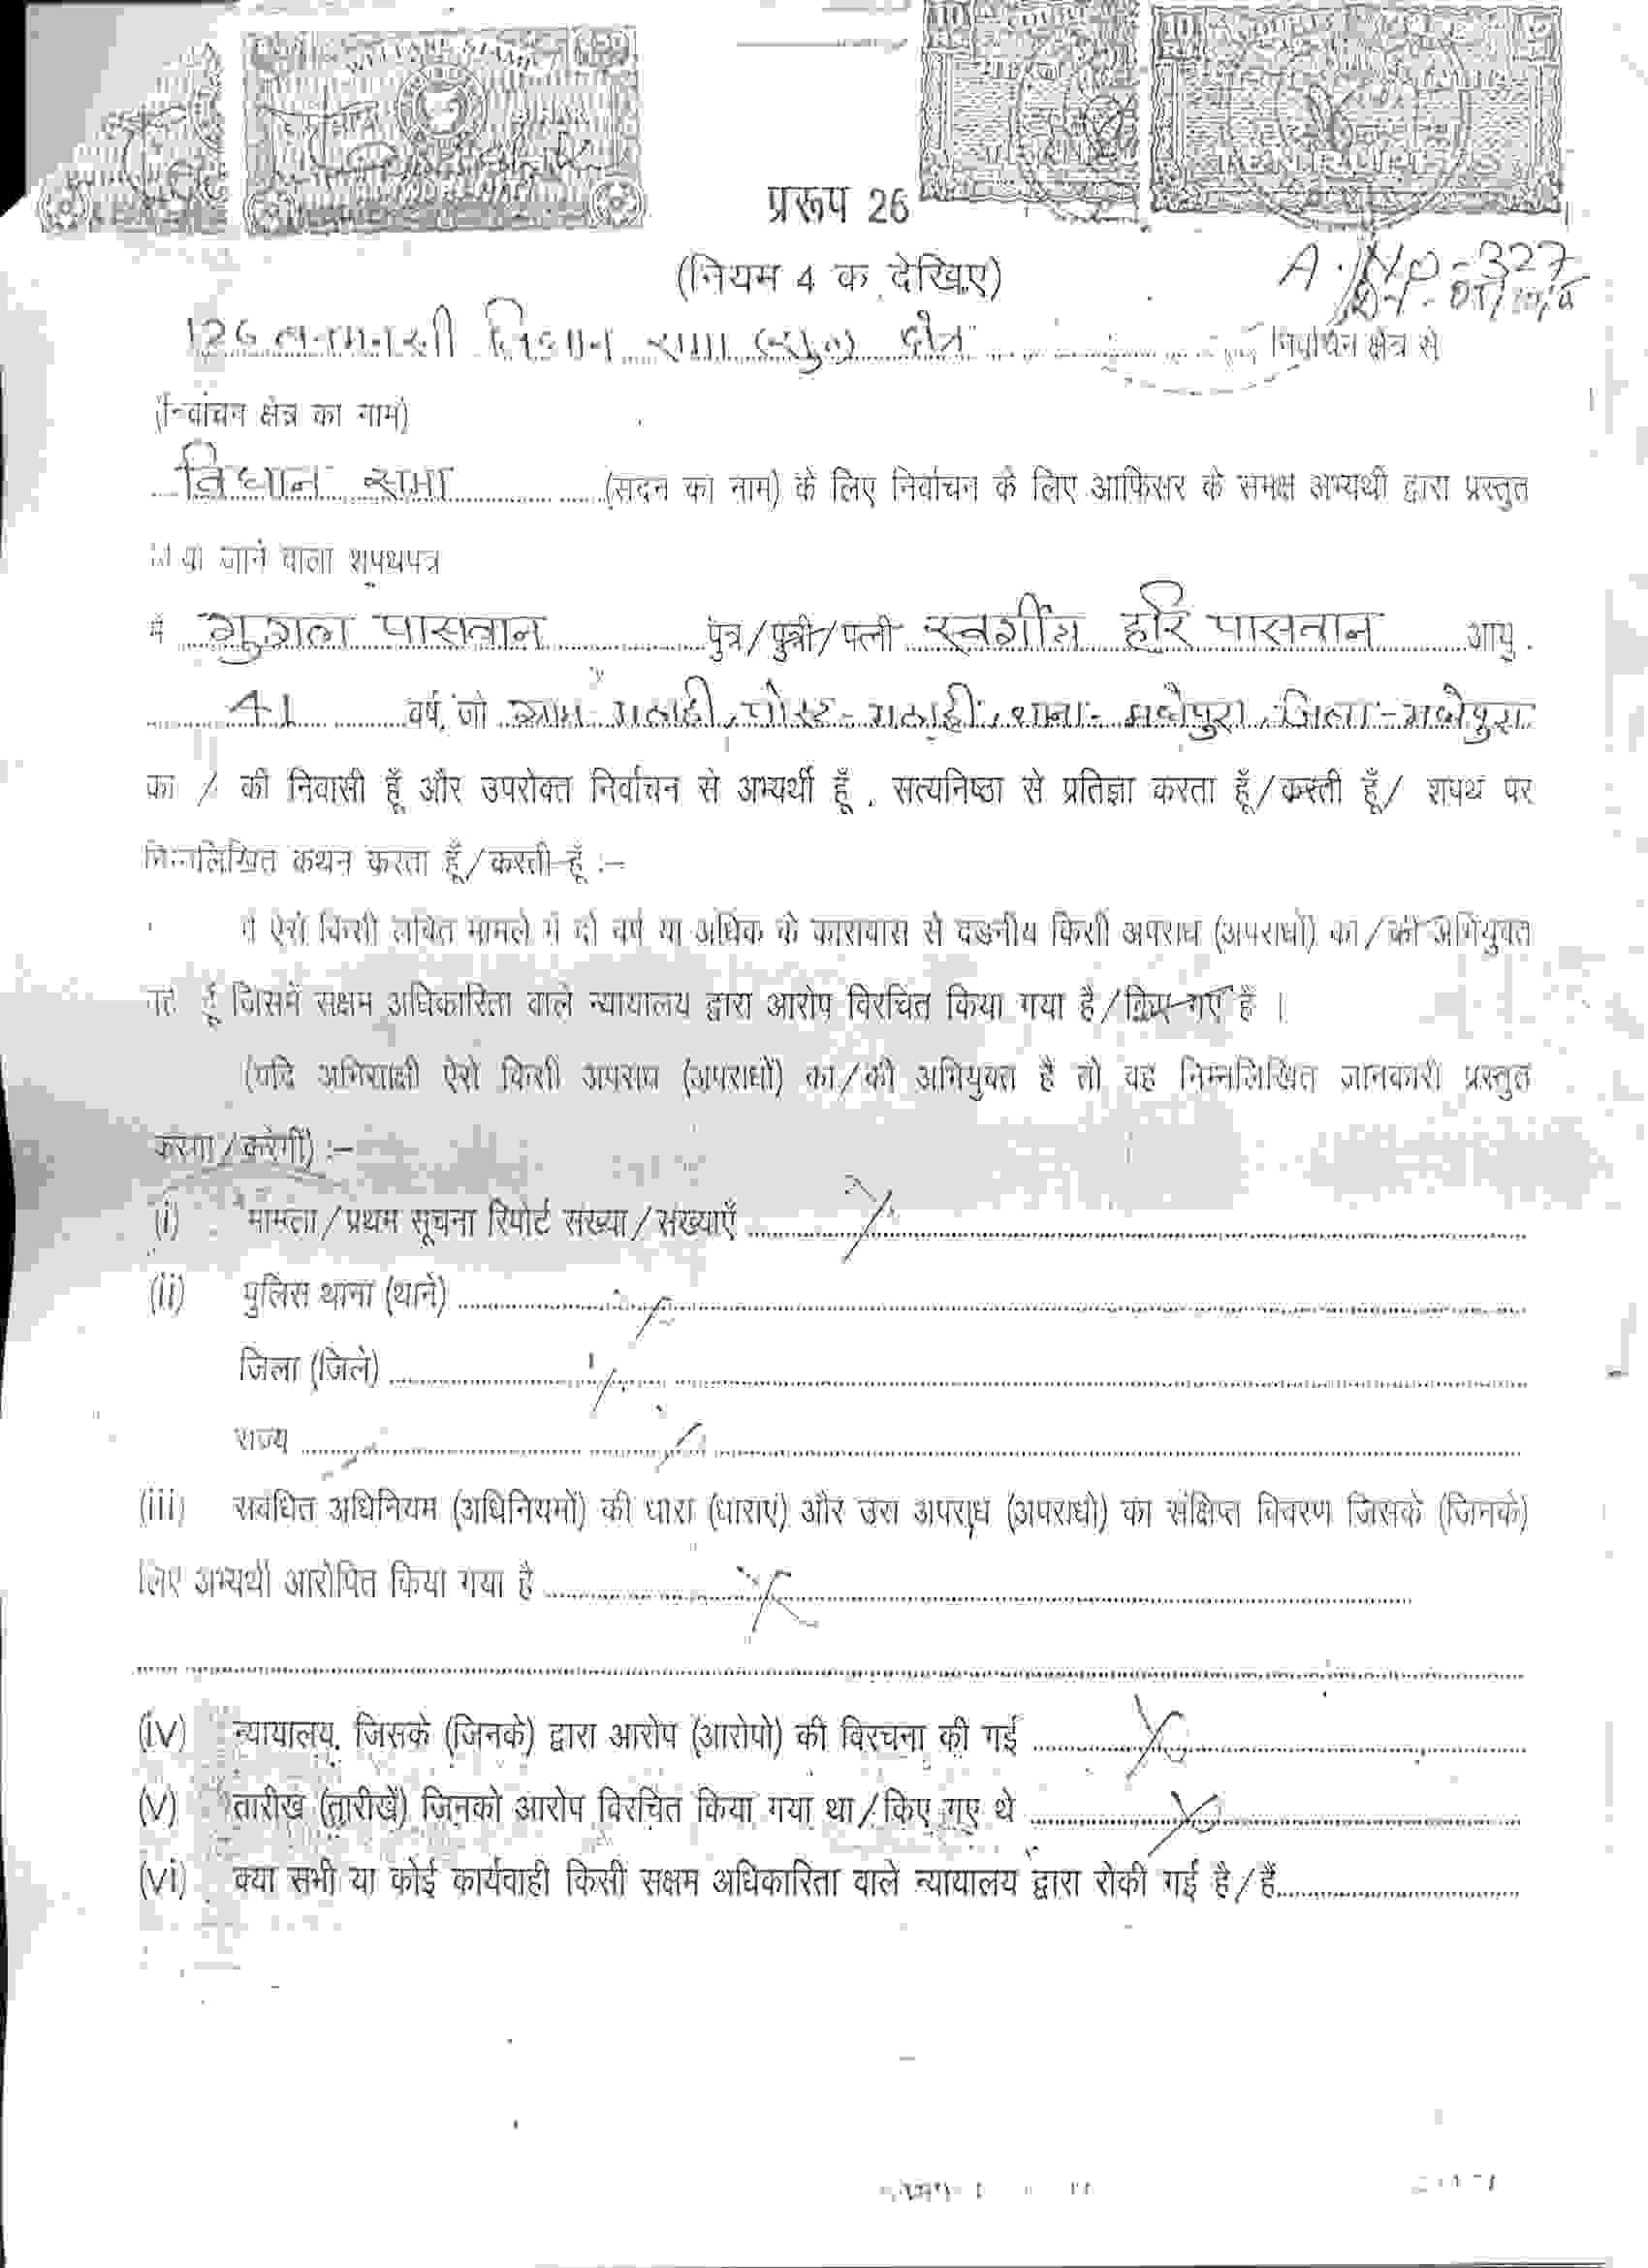 WELFARE STAMP
BIHAR
TEN RUPEES
प्ररूप 26
(नियम 4 क देखिए)
A. No - 327
विधान सभा (सु०) क्षेत्र निर्वाचन क्षेत्र से
(निर्वाचन क्षेत्र का नाम)
विधान सभा (सदन का नाम) के लिए निर्वाचन के लिए आफिसर के समक्ष अभ्यर्थी द्वारा प्रस्तुत
जाने वाला शपथपत्र
मैं पासवान पुत्र/पुत्री/पत्नी स्वर्गीय हरि पासवान आयु
41 वर्ष, जो ग्राम- मठाही, पोस्ट- मठाही, थाना- मधेपुरा, जिला- मधेपुरा
का / की निवासी हूँ और उपरोक्त निर्वाचन से अभ्यर्थी हूँ , सत्यनिष्ठा से प्रतिज्ञा करता हूँ/करती हूँ/ शपथ पर
निम्नलिखित कथन करता हूँ/करती हूँ :–
मैं ऐसे किसी लंबित मामले में दो वर्ष या अधिक के कारावास से दंडनीय किसी अपराध (अपराधों) का/की अभियुक्त
नहीं हूँ जिसमें सक्षम अधिकारिता वाले न्यायालय द्वारा आरोप विरचित किया गया है/किए गए हैं ।
(यदि अभिसाक्षी ऐसे किसी अपराध (अपराधों) का/की अभियुक्त है तो वह निम्नलिखित जानकारी प्रस्तुत
करेगा/करेगी) :–
(i) मामला/प्रथम सूचना रिपोर्ट संख्या/संख्याएँ
(ii) पुलिस थाना (थाने)
जिला (जिले)
राज्य
(iii) संबंधित अधिनियम (अधिनियमों) की धारा (धाराएं) और उस अपराध (अपराधों) का संक्षिप्त विवरण जिसके (जिनके)
लिए अभ्यर्थी आरोपित किया गया है
(iv) न्यायालय, जिसके (जिनके) द्वारा आरोप (आरोपों) की विरचना की गई
(v) तारीख (तारीखें) जिनको आरोप विरचित किया गया था/किए गए थे
(vi) क्या सभी या कोई कार्यवाही किसी सक्षम अधिकारिता वाले न्यायालय द्वारा रोकी गई है/हैं